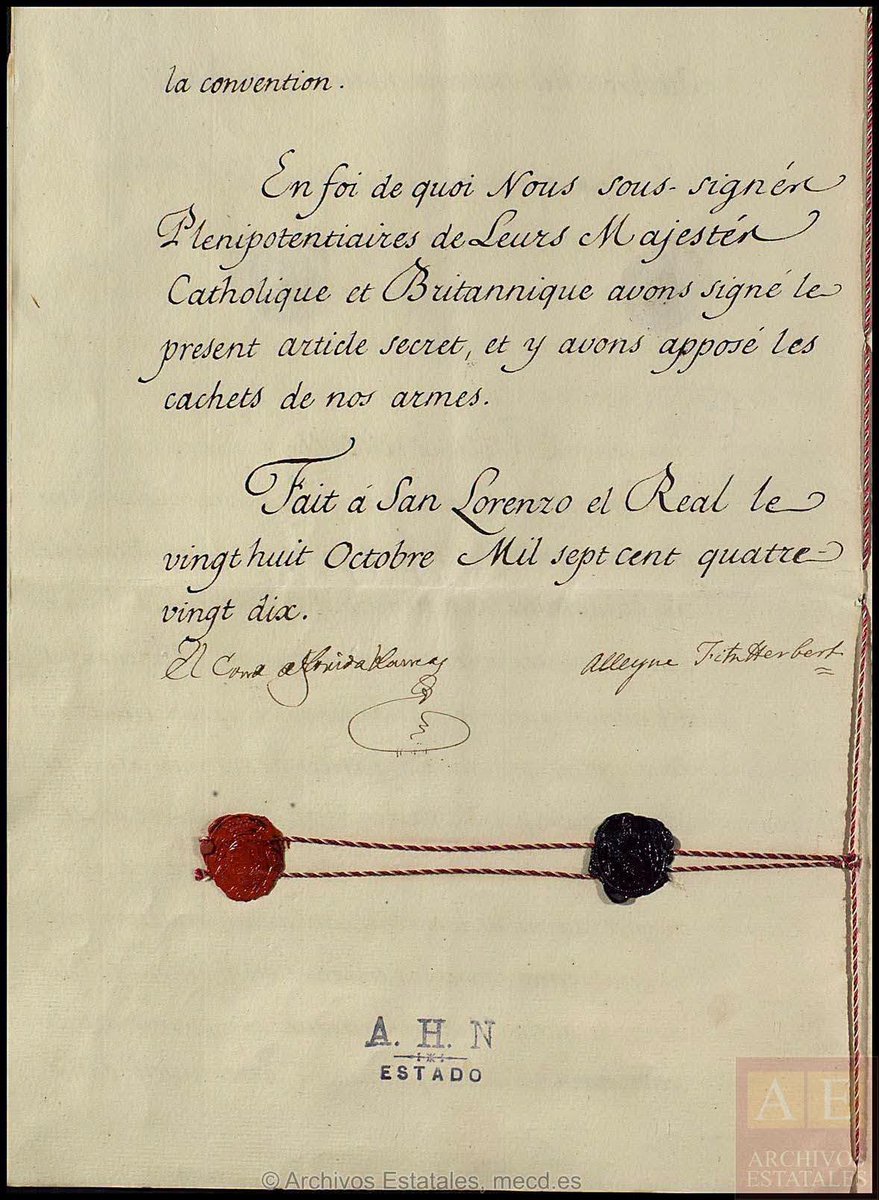 la convention.
En foi de quoi Nous sous-signés
Plenipotentiaires de Leurs Majestés
Catholique et Britannique avons signé le
present article secret, et y avons apposé les
cachets de nos armes.
Fait á San Lorenzo el Real le
vingt huit Octobre Mil sept cent quatre-
vingt dix.
El Conde de Floridablanca
Alleyne FitzHerbert
A. H. N
ESTADO
AE
ARCHIVOS
ESTATALES
© Archivos Estatales, mecd.es